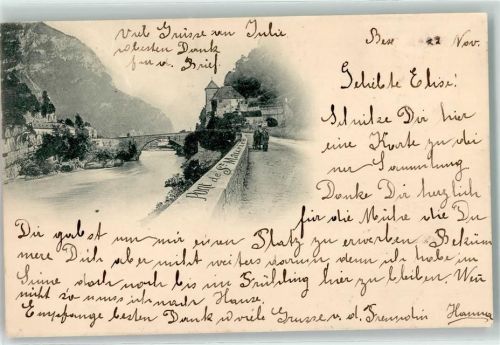 Viel Grüsse von Julie
besten Dank
für d. Brief.
Bex 22 Nov.
Geliebte Elise!
Schicke Dir hier
eine Karte zu dei
ner Sammlung
Danke Dir herzlich
für die Mühe die Du
Pont de St Maurice
Dir gabst um mir einen Platz zu erwerben Beküm
mere Dich aber nicht weiters darum denn ich habe im
Sinne doch noch bis im Frühling hier zu bleiben. Wenn
nicht so muss ich nach Hause.
Empfange besten Dank u viele Grüsse v. d. Freundin Hanna